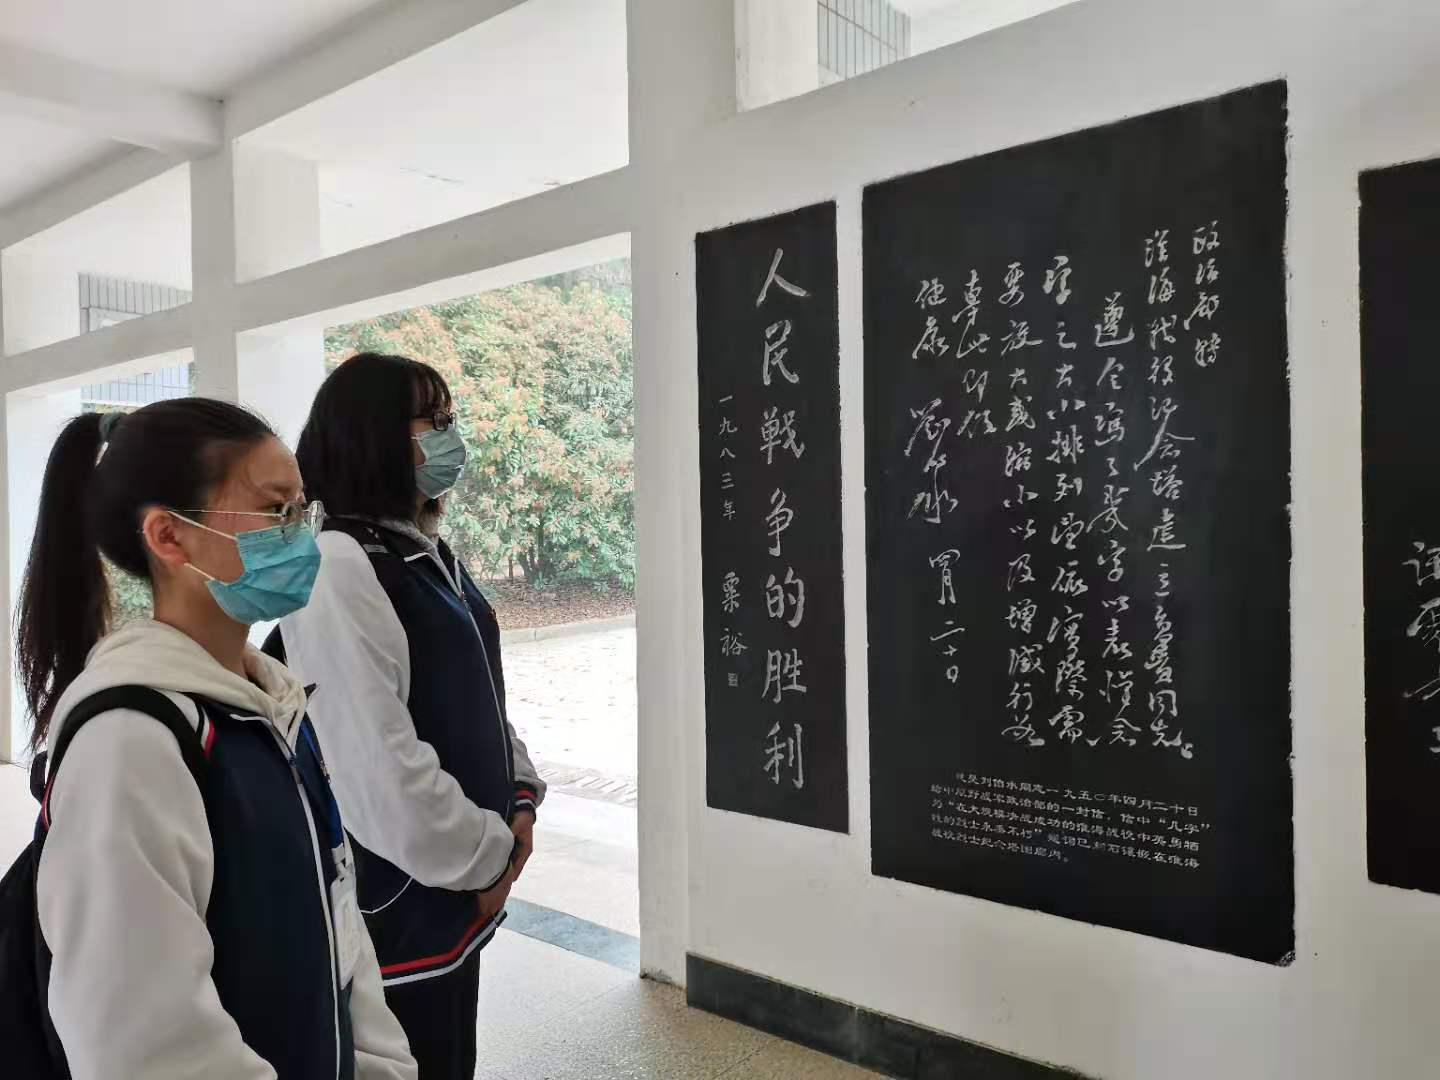 政治部转
淮海战役纪念塔建立委员同志
遵令写了几字以表悼念
字之大小排列望依实际需
要放大或缩小以及增减行
专此即颂
健康 刘伯承 四月二十日
这是刘伯承同志一九五〇年四月二十日
给中原野战军政治部的一封信，信中“几字”
为“在大规模决战成功的淮海战役中英勇牺
牲的烈士永垂不朽”题词已刻石镶嵌在淮海
战役烈士纪念塔围廊内。
人民戰争的胜利
一九八三年 粟裕